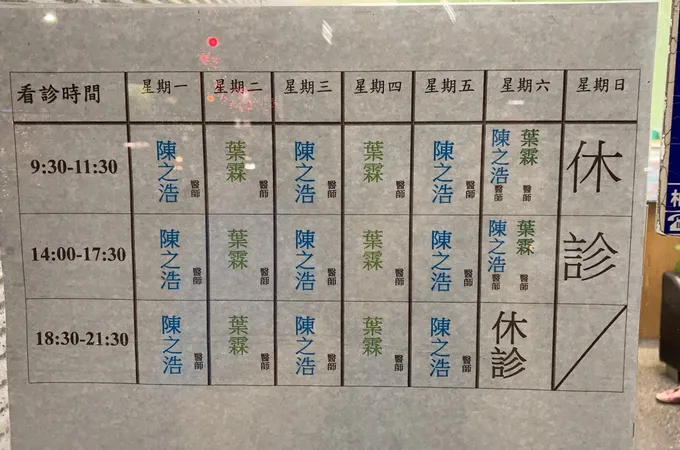 看診時間 星期一 星期二 星期三 星期四 星期五 星期六 星期日
9:30-11:30 陳之浩醫師 葉霖醫師 陳之浩醫師 葉霖醫師 陳之浩醫師 陳之浩醫師 葉霖醫師 休
14:00-17:30 陳之浩醫師 葉霖醫師 陳之浩醫師 葉霖醫師 陳之浩醫師 陳之浩醫師 葉霖醫師 診
18:30-21:30 陳之浩醫師 葉霖醫師 陳之浩醫師 葉霖醫師 陳之浩醫師 休診